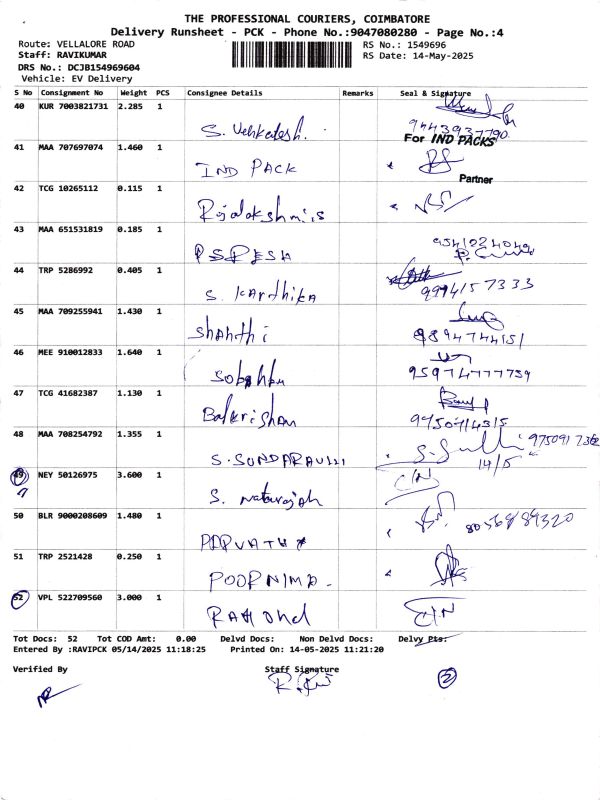 THE PROFESSIONAL COURIERS, COIMBATORE
Delivery Runsheet - PCK - Phone No.:9047080280 - Page No.:4
Route: VELLALORE ROAD RS No.: 1549696
Staff: RAVIKUMAR RS Date: 14-May-2025
DRS No.: DCJB154969604
Vehicle: EV Delivery
S No Consignment No Weight PCS Consignee Details Remarks Seal & Signature
40 KUR 7003821731 2.285 1
S. Venkatesh. 9443937790
For IND PACKS
41 MAA 707697074 1.460 1
IND PACK
Partner
42 TCG 10265112 0.115 1
Rajalakshmi.s
43 MAA 651531819 0.185 1
44 TRP 5286992 0.405 1
S. Karthika 9994157333
45 MAA 709255941 1.430 1
Shanthi 9894744151
46 MEE 910012833 1.640 1
9597477739
47 TCG 41682387 1.130 1
Balkrishan
48 MAA 708254792 1.355 1
S. SUNDARAVALLI 14/5
49 NEY 50126975 3.600 1
S. Natarajah
50 BLR 9000208609 1.480 1
8056989320
51 TRP 2521428 0.250 1
POORNIMA.
52 VPL 522709560 3.000 1
Tot Docs: 52 Tot COD Amt: 0.00 Delvd Docs: Non Delvd Docs: Delvy Pts:
Entered By :RAVIPCK 05/14/2025 11:18:25 Printed On: 14-05-2025 11:21:20
Verified By Staff Signature
2